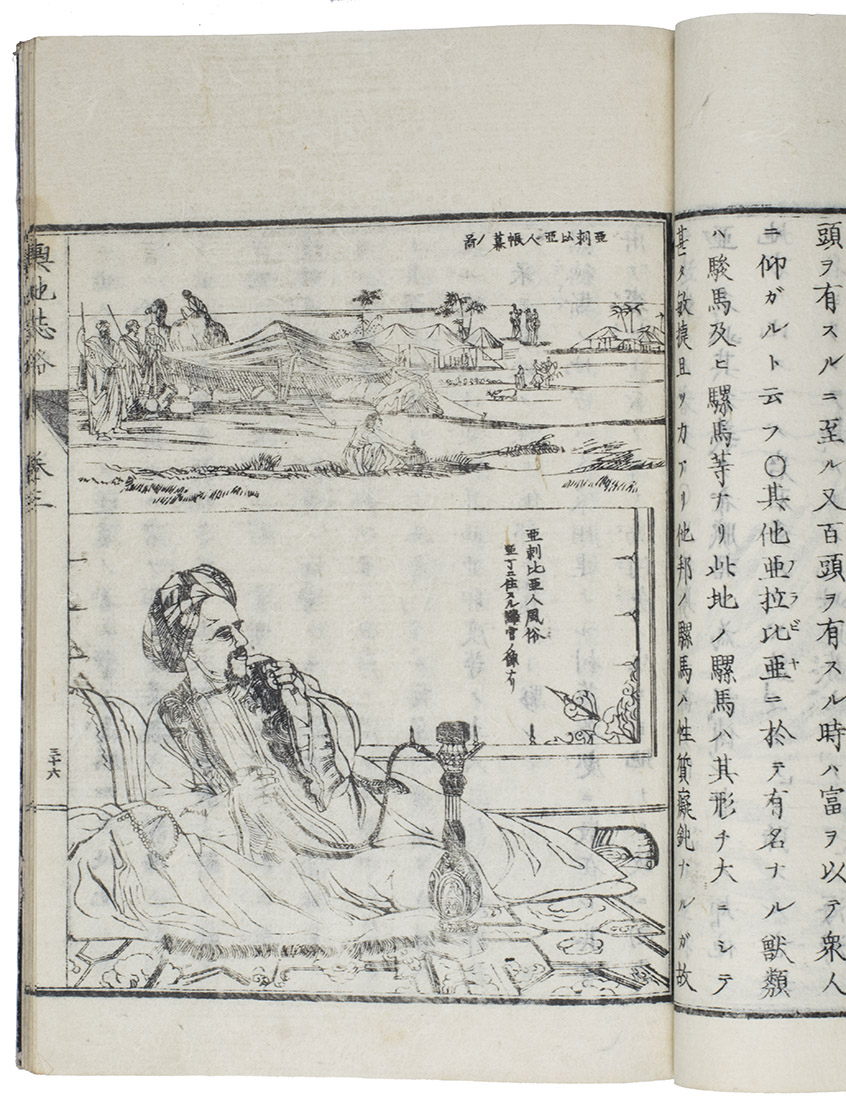 頭ヲ有スルニ至ル又百頭ヲ有スル時ハ富ヲ以テ衆人
ニ仰ガルト云フ〇其他亜拉比亜ニ於テ有名ナル獣類
アラビヤ
ハ駿馬及ヒ騾馬等ナリ此地ノ騾馬ハ其形チ大ニシテ
甚タ敏捷且ツ力アリ他邦ノ騾馬ハ性質癡鈍ナルガ故
亜剌比亜人帳幕ノ啚
亜剌比亜人風俗
亜丁ニ住スル官ノ像ナリ
輿地誌略
卷三
三十六